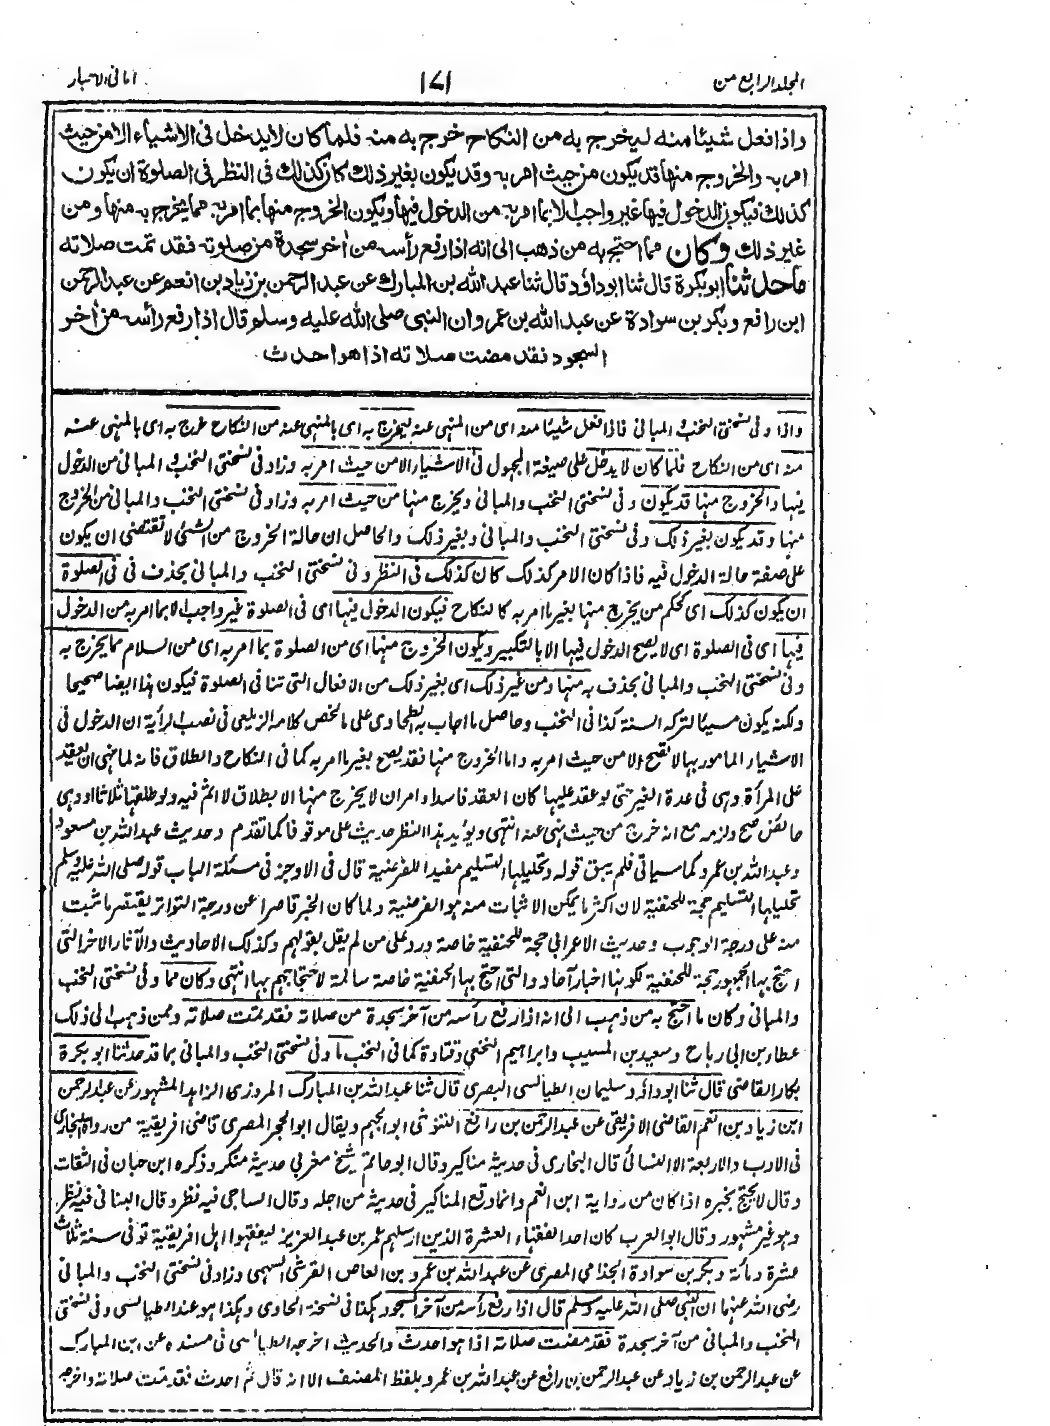 المجلد الرابع من
١٧١
امانی الاحبار
واذا فعل شيئا منه ليخرج به من النكاح خرج به منه فلما كان لا يدخل فى الأشياء الا من حيث
امر به والخروج منها قد يكون من حيث امر به وقد يكون بغير ذلك كان كذلك فى النظر فى الصلوة ان يكون
كذلك فيكون الدخول فيها غير واجب الا بما امر به من الدخول فيها ويكون الخروج منها بما امر به مما يخرج به منها ومن
غير ذلك وكان مما احتج به من ذهب الى انه اذا رفع رأسه من اٰخر سجدة من صلوته فقد تمت صلاته
ما حدثنا ابو بكرة قال ثنا ابو داؤد قال ثنا عبد الله بن المبارك عن عبد الرحمن بن زياد بن انعم عن عبد الرحمن
ابن رافع وبكر بن سوادة عن عبد الله بن عمرو ان النبى صلى الله عليه وسلم قال اذا رفع رأسه من اٰخر
السجود فقد مضت صلاته اذا هو احدث
واذا وفى نسختى النخب والمبانى فاذا فعل شيئا منه اى من المنهى عنه ليخرج به اى بالمنهى عنه من النكاح خرج به اى بالمنهى عنه
منه اى من النكاح فلما كان لا يدخل على صيغة المجهول فى الاشياء الا من حيث امر به وزاد فى نسختى النخب والمبانى من الدخول
فيها والخروج منها قد يكون وفى نسختى النخب والمبانى ويخرج منها من حيث امر به وزاد فى نسختى النخب والمبانى من الخروج
منها وقد يكون بغير ذلك وفى نسختى النخب والمبانى وبغير ذلك والحاصل ان حالة الخروج من الشئ لا تقتضى ان يكون
على صفة حالة الدخول فيه فاذا كان الامر كذلك كان كذلك فى النظر وفى نسختى النخب والمبانى بحذف فى فى الصلوة
ان يكون كذلك اى كحكم من يخرج منها بغير ما امر به كالنكاح فيكون الدخول فيها اى فى الصلوة غير واجب الا بما امر به من الدخول
فيها اى فى الصلوة اى لا يصح الدخول فيها الا بالتكبير ويكون الخروج منها اى من الصلوة بما امر به اى من السلام مما يخرج به
وفى نسختى النخب والمبانى بحذف به منها ومن غير ذلك اى بغير ذلك من الافعال التى تنافى الصلوة فيكون هذا ايضا صحيحا
ولكنه يكون مسيئا لتركه السنة كذا فى النخب وحاصل ما اجاب به الطحاوى على ما لخص كلامه الزيلعى فى نصب الراية ان الدخول فى
الاشياء المامور بها لا تصح الا من حيث امر به واما الخروج منها فقد يصح بغير ما امر به كما فى النكاح والطلاق فانه لما نهى ان يعقد
على المرأة وهى فى عدة الغير حتى لو عقد عليها كان العقد فاسدا وامر ان لا يخرج منها الا بطلاق لا اثم فيه ولو طلقها ثلاثا او وهى
حائض صح ولزمه مع انه خرج من حيث نهى عنه انتهى ويؤيد هذا النظر حديث على موقوفا كما تقدم وحديث عبد الله بن مسعود
وعبد الله بن عمرو كما سياتى فلم يبق قوله وتحليلها التسليم مفيدا للفرضية قال فى الاوجز فى مسئلة الباب قوله صلى الله عليه وسلم
تحليلها التسليم حجة للحنفية لان اكثر ما يمكن الاثبات منه هو الفرضية ولما كان الخبر قاصرا عن درجة التواتر يقتصر ما ثبت
منه على درجة الوجوب وحديث الاعرابى حجة للحنفية خاصة ورد على من لم يقل بقولهم وكذلك الاحاديث والآثار الاخر التى
احتج بها الجمهور حجة للحنفية لكونها اخبار آحاد والتى احتج بها الحنفية خاصة سالمة لاحتجاجهم بها انتهى وكان مما وفى نسختى النخب
والمبانى وكان ما احتج به من ذهب الى انه اذا رفع رأسه من آخر سجدة من صلاته فقد تمت صلاته وممن ذهب الى ذلك
عطاء بن ابى رباح وسعيد بن المسيب وابراهيم النخعى وقتادة كما فى النخب ما وفى نسختى النخب والمبانى بما قد حدثنا ابو بكرة
بكار القاضى قال ثنا ابو داؤد سليمان الطيالسى البصرى قال ثنا عبد الله بن المبارك المروزى الزاهد المشهور عن عبد الرحمن
ابن زياد بن انعم القاضى الافريقى عن عبد الرحمن بن رافع التنوخى ابو الجهم ويقال ابو الحجر المصرى قاضى افريقية من رواة البخارى
فى الادب والاربعة الا النسائى قال البخارى فى حديثه مناكير وقال ابو حاتم شيخ مغربى حديثه منكر وذكره ابن حبان فى الثقات
وقال لا يحتج بخبره اذا كان من رواية ابن انعم وانما وقع المناكير فى حديثه من اجله وقال الساجى فيه نظر وقال البنانى فيه نظر
وهو غير مشهور وقال ابو العرب كان احد الفقهاء العشرة الذين ارسلهم عمر بن عبد العزيز ليفقهوا اهل افريقية توفى سنة ثلاث
عشرة ومائة وبكر بن سوادة الجذامى المصرى عن عبد الله بن عمرو بن العاص القرشى السهمى وزاد فى نسختى النخب والمبانى
رضى الله عنهما ان النبى صلى الله عليه وسلم قال اذا رفع رأسه من آخر السجود هكذا فى نسخة الحاوى وهكذا هو عند الطيالسى وفى نسختى
النخب والمبانى من آخر سجدة فقد مضت صلاته اذا هو احدث والحديث اخرجه الطيالسى فى مسنده عن ابن المبارك
عن عبد الرحمن بن زياد عن عبد الرحمن بن رافع عن عبد الله بن عمرو بلفظ المصنف الا انه قال ثم احدث فقد تمت صلاته واخرجه